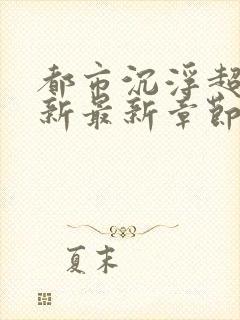 都市沉浮超
新最新章节
夏末